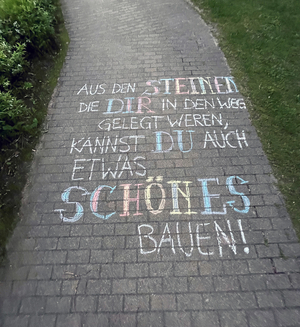 AUS DEN STEINEN
DIE DIR IN DEN WEG
GELEGT WEREN,
KANNST DU AUCH
ETWAS
SCHÖNES
BAUEN!